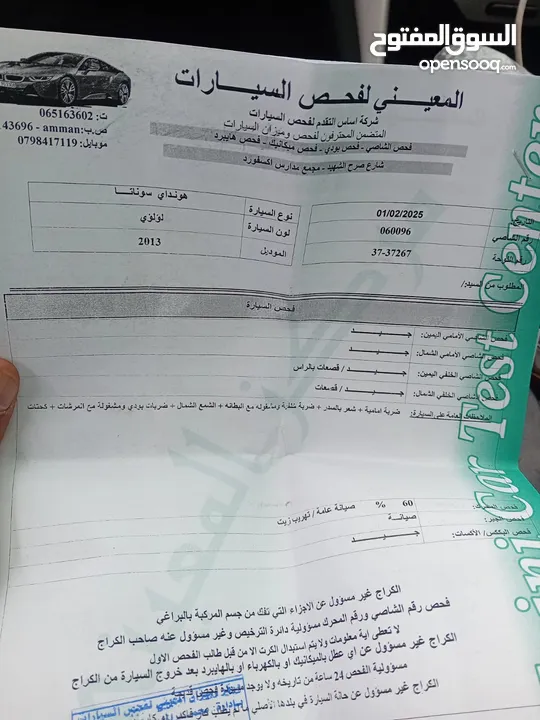 السوق المفتوح
opensooq.com
المعيني لفحص السيارات
شركة اساس التقدم لفحص السيارات
المتضمن المحترفون لفحص وميزان السيارات
فحص الشاصي - فحص بودي - فحص ميكانيك - فحص هايبرد
شارع صرح الشهيد - مجمع مدارس اكسفورد
ت: 065163602
ص.ب: amman - 143696
موبايل: 0798417119
01/02/2025
نوع السيارة هونداي سوناتا
رقم الشاصي 060096
لون السيارة لؤلؤي
رقم اللوحة 37-37267
الموديل 2013
المطلوب من السيد/
فحص السيارة
فحص الشاصي الأمامي اليمين: جيد
فحص الشاصي الأمامي الشمال: جيد
فحص الشاصي الخلفي اليمين: جيد / قصعات بالراس
فحص الشاصي الخلفي الشمال: جيد / قصعات
الملاحظات العامة على السيارة: ضربة امامية + شعر بالصدر + ضربة خلفية ومشغوله مع البطانه + الشمع الشمال + ضربات بودي ومشغولة مع المرشات + كحتات
60 % صيانة عامة / تهريب زيت
فحص الجير: صيانة
فحص البككس/ الأكسات: جيد
الكراج غير مسؤول عن الاجزاء التي تفك من جسم المركبة بالبراغي
فحص رقم الشاصي ورقم المحرك مسؤولية دائرة الترخيص وغير مسؤول عنه صاحب الكراج
لا تعطى اية معلومات ولا يتم استبدال الكرت الا من قبل طالب الفحص الاول
الكراج غير مسؤول عن اي عطل بالميكانيك او بالكهرباء او بالهايبرد بعد خروج السيارة من الكراج
مسؤولية الفحص 24 ساعة من تاريخه ولا يوجد
الكراج غير مسؤول عن حالة السيارة في بلدها الأصلي
ini Car Test Center